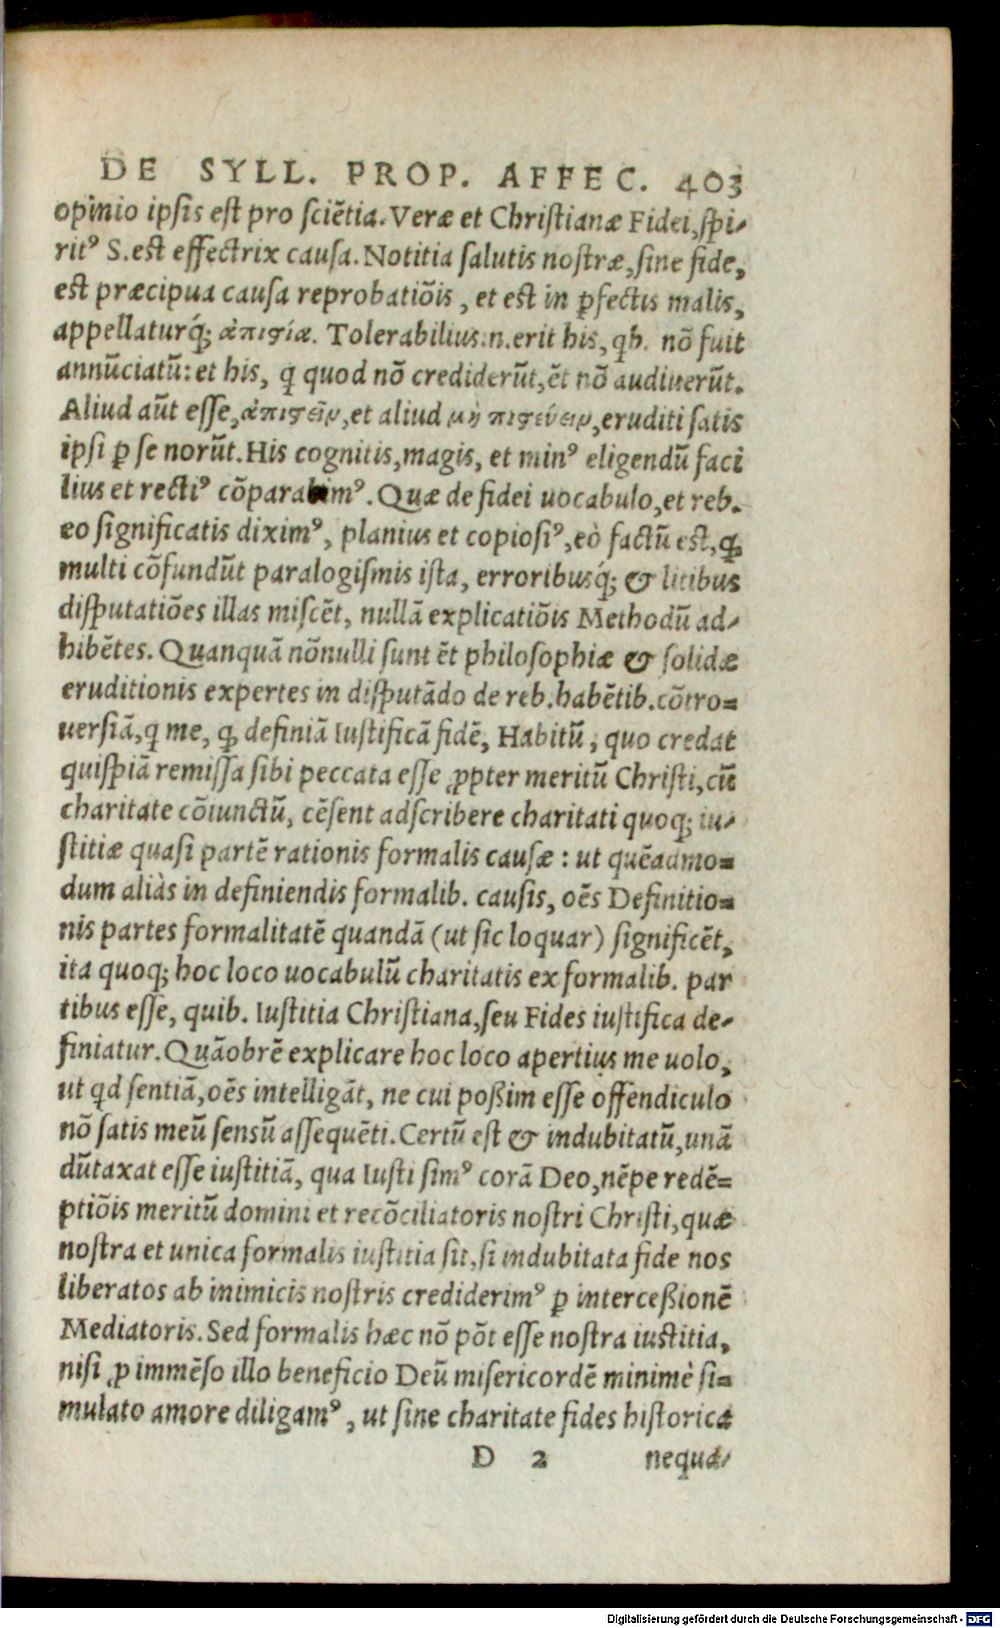 DE SYLL. PROP. AFFEC. 403
opinio ipsis est pro sciẽtia. Veræ et Christianæ Fidei, spi-
ritꝰ S. est effectrix causa. Notitia salutis nostræ, sine fide,
est præcipua causa reprobatiõis, et est in ꝑfectis malis,
appellaturq́; ἀπιστία. Tolerabilius.n.erit his, qb. nõ fuit
annũciatũ: et his, q quod nõ crediderũt, ẽt nõ audiuerũt.
Aliud aũt esse, ἀπιστεῖν, et aliud μὴ πιστεύειν, eruditi satis
ipsi ꝑ se norũt. His cognitis, magis, et minꝰ eligendũ faci
lius et rectiꝰ cõparabimꝰ. Quæ de fidei uocabulo, et reb.
eo significatis diximꝰ, planius et copiosiꝰ, eò factũ est, ꝙ
multi cõfundũt paralogismis ista, erroribusq́; & litibus
disputatiões illas miscẽt, nullã explicatiõis Methodũ ad-
hibẽtes. Quanquã nõnulli sunt ẽt philosophiæ & solidæ
eruditionis expertes in disputãdo de reb. habẽtib. cõtro=
uersiã, q me, ꝙ definiã Iustificã fidẽ, Habitũ, quo credat
quispiã remissa sibi peccata esse ꝓpter meritũ Christi, cũ
charitate cõiunctũ, cẽsent adscribere charitati quoq; iu-
stitiæ quasi partẽ rationis formalis causæ: ut quẽadmo=
dum aliàs in definiendis formalib. causis, oẽs Definitio=
nis partes formalitatẽ quandã (ut sic loquar) significẽt,
ita quoq; hoc loco uocabulũ charitatis ex formalib. par
tibus esse, quib. Iustitia Christiana, seu Fides iustifica de-
finiatur. Quãobrẽ explicare hoc loco apertius me uolo,
ut qd sentiã, oẽs intelligãt, ne cui poßim esse offendiculo
nõ satis meũ sensũ assequẽti. Certũ est & indubitatũ, unã
dũtaxat esse iustitiã, qua Iusti simꝰ corã Deo, nẽpe redẽ=
ptiõis meritũ domini et recõciliatoris nostri Christi, quæ
nostra et unica formalis iustitia sit, si indubitata fide nos
liberatos ab inimicis nostris crediderimꝰ ꝑ interceßionẽ
Mediatoris. Sed formalis hæc nõ põt esse nostra iustitia,
nisi ꝓ immẽso illo beneficio Deũ misericordẽ minimè si=
mulato amore diligamꝰ, ut sine charitate fides historica
D 2 nequa-
Digitalisierung gefördert durch die Deutsche Forschungsgemeinschaft - DFG